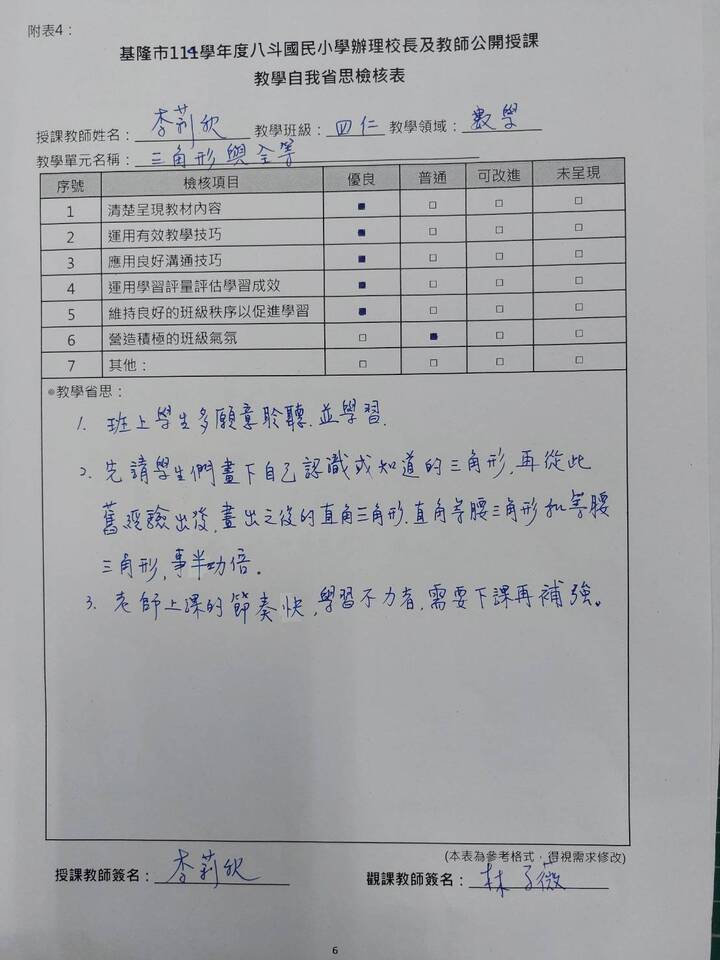 附表4：
基隆市114學年度八斗國民小學辦理校長及教師公開授課
教學自我省思檢核表
授課教師姓名：李莉欣 教學班級：四仁 教學領域：數學
教學單元名稱：三角形與全等
序號 檢核項目 優良 普通 可改進 未呈現
1 清楚呈現教材內容 ■ □ □ □
2 運用有效教學技巧 ■ □ □ □
3 應用良好溝通技巧 ■ □ □ □
4 運用學習評量評估學習成效 ■ □ □ □
5 維持良好的班級秩序以促進學習 ■ □ □ □
6 營造積極的班級氣氛 □ ■ □ □
7 其他： □ □ □ □
◉教學省思：
1. 班上學生多願意聆聽.並學習.
2. 先請學生們畫下自己認識或知道的三角形,再從此
舊經驗出後,畫出之後的直角三角形.直角等腰三角形和等腰
三角形,事半功倍。
3. 老師上課的節奏快,學習不力者,需要下課再補強。
(本表為參考格式，得視需求修改)
授課教師簽名：李莉欣 觀課教師簽名：林子薇
6